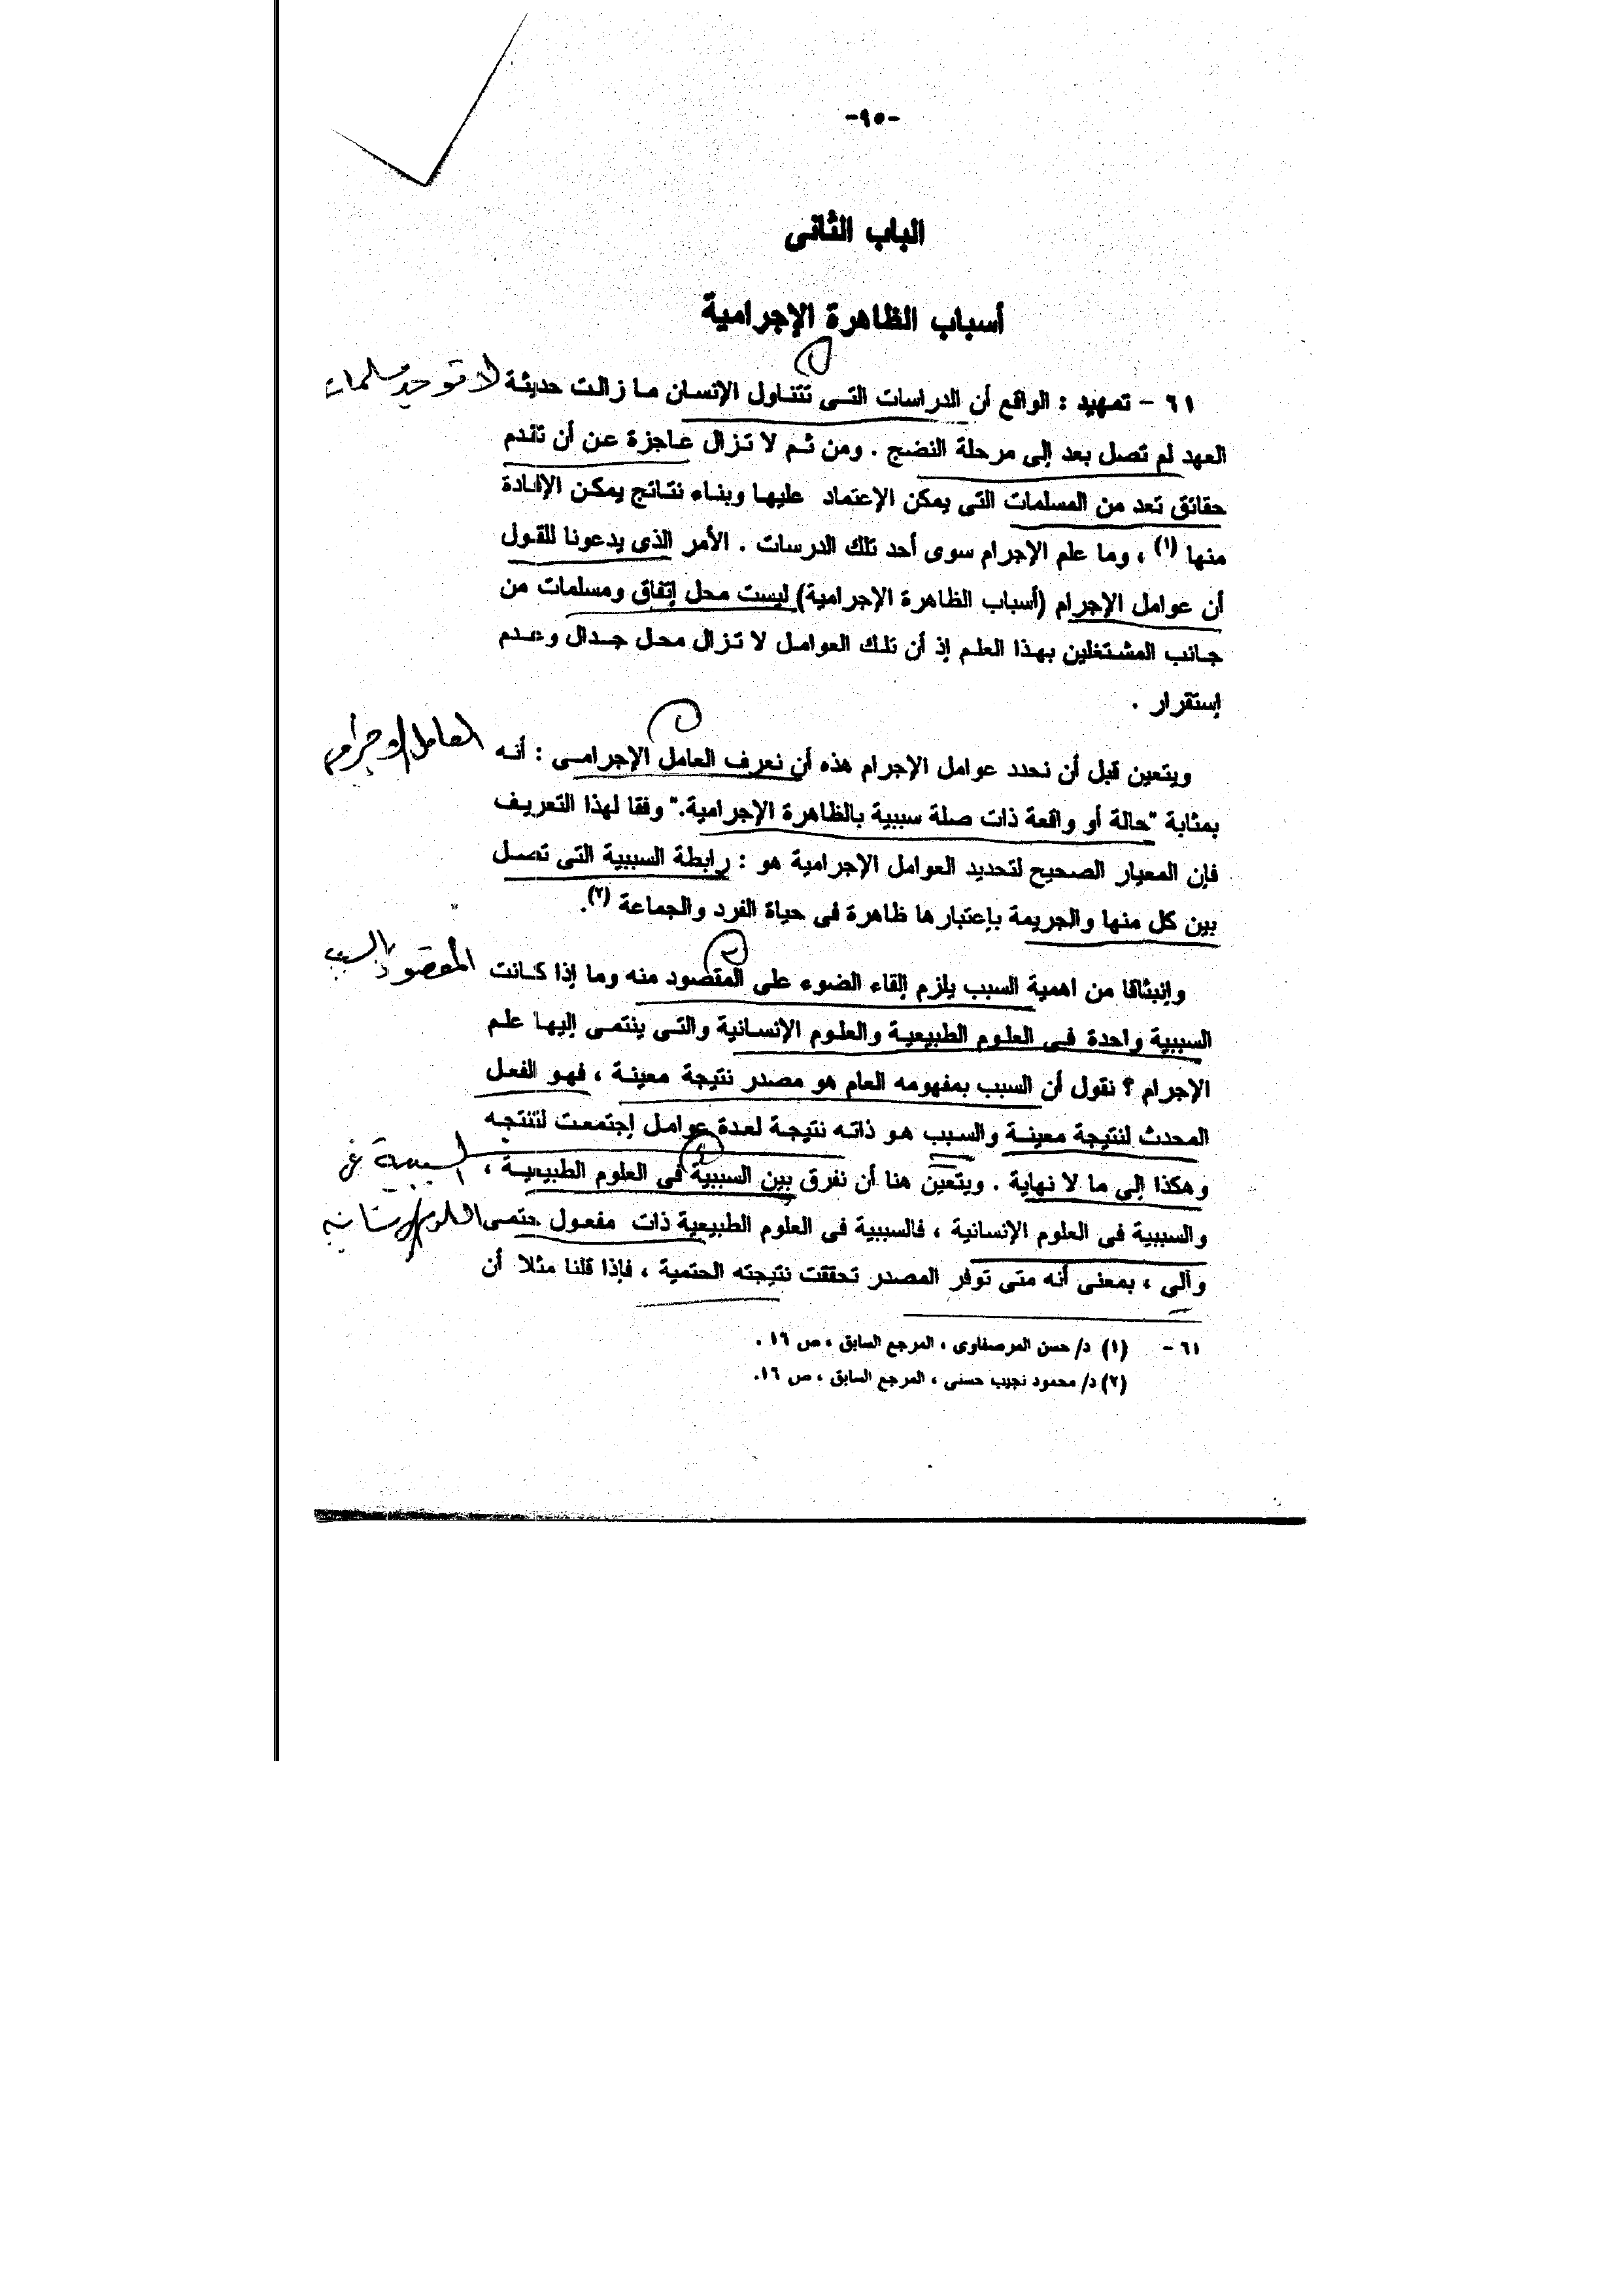 -٩٥-
الباب الثانى
أسباب الظاهرة الإجرامية
٦١ - تمهيد : الواقع أن الدراسات التى تتناول الإنسان ما زالت حديثة
لا توجد مسلمات
العهد لم تصل بعد إلى مرحلة النضج . ومن ثم لا تزال عاجزة عن أن تقدم
حقائق تعد من المسلمات التى يمكن الإعتماد عليها وبناء نتائج يمكن الإفادة
منها (١) ، وما علم الإجرام سوى أحد تلك الدرسات . الأمر الذى يدعونا للقول
أن عوامل الإجرام (أسباب الظاهرة الإجرامية) ليست محل إتفاق ومسلمات من
جانب المشتغلين بهذا العلم إذ أن تلك العوامل لا تزال محل جدال وعدم
إستقرار .
ويتعين قبل أن نحدد عوامل الإجرام هذه أن نعرف العامل الإجرامى : أنه
العامل الإجرامى
بمثابة "حالة أو واقعة ذات صلة سببية بالظاهرة الإجرامية." وفقا لهذا التعريف
فإن المعيار الصحيح لتحديد العوامل الإجرامية هو : رابطة السببية التى تصل
بين كل منها والجريمة بإعتبارها ظاهرة فى حياة الفرد والجماعة (٢).
وإنبثاقا من اهمية السبب يلزم إلقاء الضوء على المقصود منه وما إذا كانت
المقصود بالسبب
السببية واحدة فى العلوم الطبيعية والعلوم الإنسانية والتى ينتمى إليها علم
الإجرام ؟ نقول أن السبب بمفهومه العام هو مصدر نتيجة معينة ، فهو الفعل
المحدث لنتيجة معينة والسبب هو ذاته نتيجة لعدة عوامل إجتمعت لتنتجه
وهكذا إلى ما لا نهاية . ويتعين هنا أن نفرق بين السببية فى العلوم الطبيعية ،
السببية فى
والسببية فى العلوم الإنسانية ، فالسببية فى العلوم الطبيعية ذات مفعول حتمى
العلوم الإنسانية
وآلى ، بمعنى أنه متى توفر المصدر تحققت نتيجته الحتمية ، فإذا قلنا مثلا أن
٦١ - (١) د/ حسن المرصفاوى ، المرجع السابق ، ص ١٦ .
(٢) د/ محمود نجيب حسنى ، المرجع السابق ، ص ١٦.